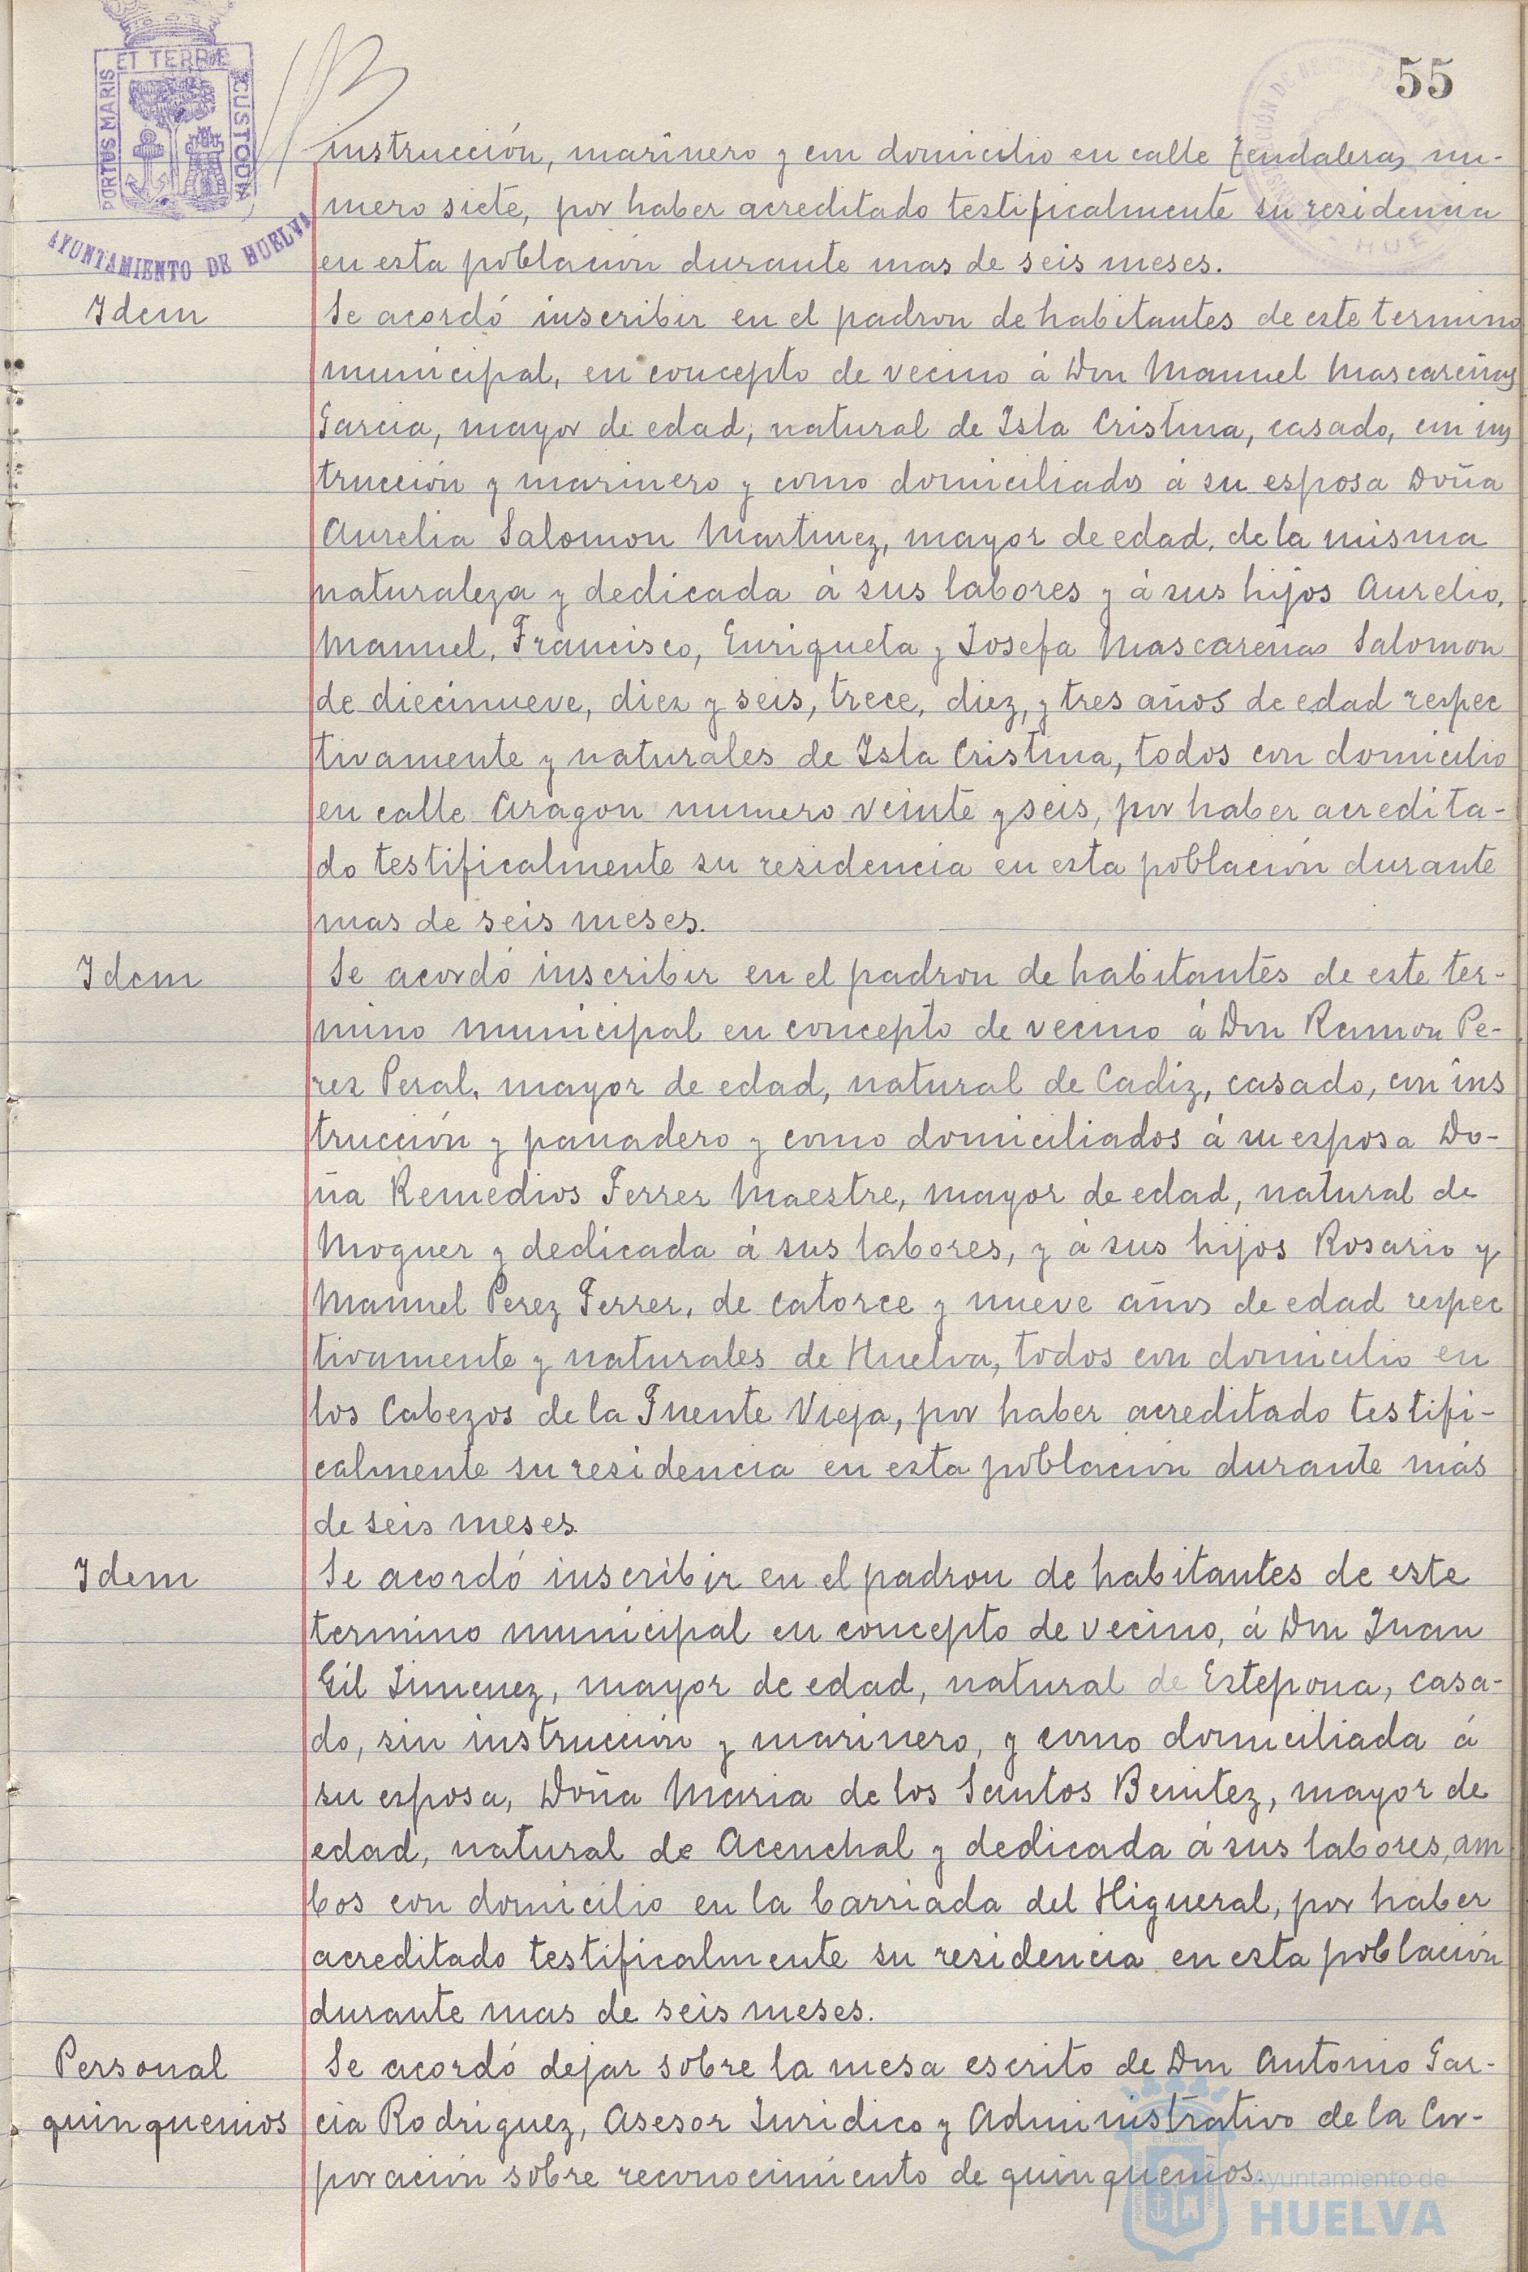 55
PORTUS MARIS ET TERRÆ CUSTODIA
AYUNTAMIENTO DE HUELVA
instrucción, marinero y con domicilio en calle Zendaleras nu-
mero siete, por haber acreditado testificalmente su residencia
en esta población durante mas de seis meses.
Idem
Se acordó inscribir en el padron de habitantes de este termino
municipal, en concepto de vecino á Don Manuel Mascareñas
Garcia, mayor de edad, natural de Isla Cristina, casado, con ins
trucción y marinero y como domiciliados á su esposa Doña
Aurelia Salomon Martinez, mayor de edad, de la misma
naturaleza y dedicada á sus labores y á sus hijos Aurelio,
Manuel, Francisco, Enriqueta y Josefa Mascareñas Salomon
de diecinueve, diez y seis, trece, diez, y tres años de edad respec
tivamente y naturales de Isla Cristina, todos con domicilio
en calle Aragon numero veinte y seis, por haber acredita-
do testificalmente su residencia en esta población durante
mas de seis meses.
Idem
Se acordó inscribir en el padron de habitantes de este ter-
mino municipal en concepto de vecino á Don Ramon Pe-
rez Peral, mayor de edad, natural de Cadiz, casado, con ins
trucción y panadero y como domiciliados á su esposa Do-
ña Remedios Ferrer Maestre, mayor de edad, natural de
Moguer y dedicada á sus labores, y á sus hijos Rosario y
Manuel Perez Ferrer, de catorce y nueve años de edad respec
tivamente y naturales de Huelva, todos con domicilio en
los Cabezos de la Fuente Vieja, por haber acreditado testifi-
calmente su residencia en esta población durante más
de seis meses.
Idem
Se acordó inscribir en el padron de habitantes de este
termino municipal en concepto de vecino, á Don Juan
Gil Jimenez, mayor de edad, natural de Estepona, casa-
do, sin instrucción y marinero, y como domiciliada á
su esposa, Doña Maria de los Santos Benitez, mayor de
edad, natural de Acenchal y dedicada á sus labores, am
bos con domicilio en la barriada del Higueral, por haber
acreditado testificalmente su residencia en esta población
durante mas de seis meses.
Personal
quinquenios
Se acordó dejar sobre la mesa escrito de Don Antonio Gar-
cia Rodriguez, Asesor Juridico y Administrativo de la Cor-
poración sobre reconocimiento de quinquenios.
Ayuntamiento de
HUELVA